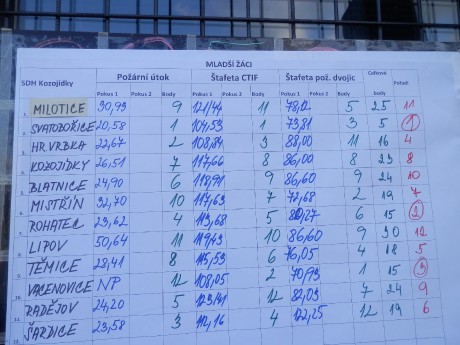 MLADŠÍ ŽÁCI
SDH Kozojídky Požární útok Štafeta CTIF Štafeta pož. dvojic Celkové body Pořadí
Pokus 1 Pokus 2 Body Pokus 1 Pokus 2 Body Pokus 1 Pokus 2 Body
1. MILOTICE 30,93 9 121,44 11 78,12 5 25 11
2. SVATOBOŘICE 20,58 1 104,53 1 73,81 3 5 1
3. HR.VRBKA 22,67 2 108,84 3 88,00 11 16 4
4. KOZOJÍDKY 26,51 7 117,66 8 86,00 8 23 8
5. BLATNICE 24,90 6 118,91 9 86,60 9 24 10
6. MISTŘÍN 32,70 10 117,63 7 72,68 2 19 7
7. ROHATEC 23,62 4 113,68 5 80,27 6 15 2
8. LIPOV 50,64 11 119,43 10 86,60 9 30 12
9. TĚMICE 28,41 8 115,53 6 76,05 4 18 5
10. VACENOVICE NP 12 108,05 2 70,93 1 15 3
11. RADĚJOV 24,20 5 123,41 12 82,03 7 24 9
12. ŠARDICE 23,58 3 112,16 4 122,25 12 19 6